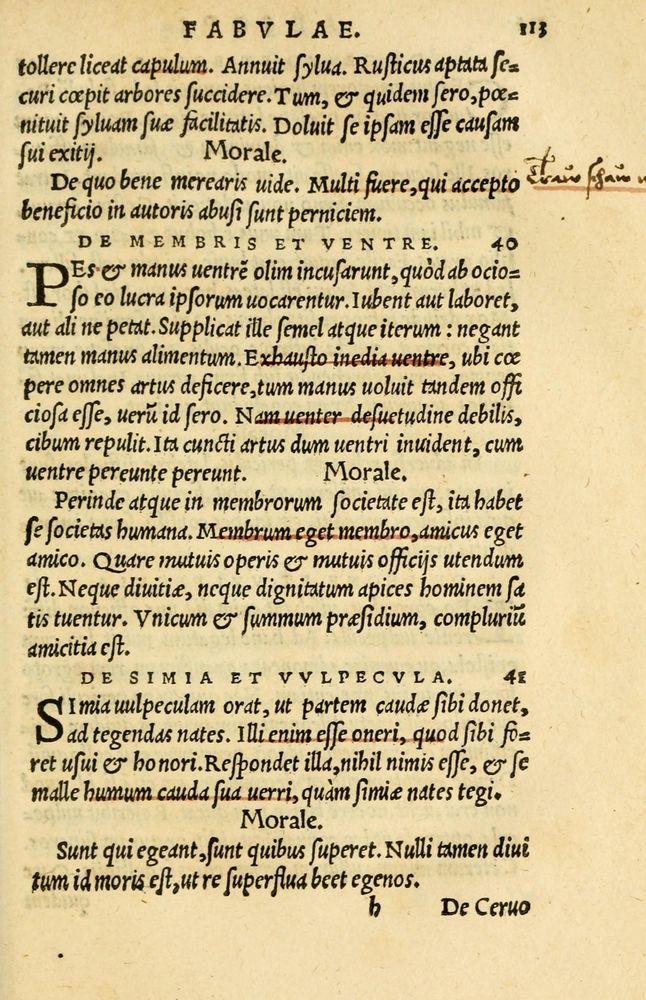 FABVLAE. 113
tollere liceat capulum. Annuit sylua. Rusticus aptata se=
curi cœpit arbores succidere. Tum, & quidem sero, pœ=
nituit syluam suæ facilitatis. Doluit se ipsam esse causam
sui exitij. Morale.
De quo bene merearis uide. Multi fuere, qui accepto
beneficio in autoris abusi sunt perniciem.
DE MEMBRIS ET VENTRE. 40
PEs & manus uentrē olim incusarunt, quòd ab ocio=
so eo lucra ipsorum uocarentur. Iubent aut laboret,
aut ali ne petat. Supplicat ille semel atque iterum: negant
tamen manus alimentum. Exhausto inedia uentre, ubi cœ
pere omnes artus deficere, tum manus uoluit tandem offi
ciosa esse, uerū id sero. Nam uenter desuetudine debilis,
cibum repulit. Ita cuncti artus dum uentri inuident, cum
uentre pereunte pereunt. Morale.
Perinde atque in membrorum societate est, ita habet
se societas humana. Membrum eget membro, amicus eget
amico. Quare mutuis operis & mutuis officijs utendum
est. Neque diuitiæ, neque dignitatum apices hominem sa
tis tuentur. Vnicum & summum præsidium, compluriū
amicitia est.
DE SIMIA ET VVLPECVLA. 41
SImia uulpeculam orat, ut partem caudæ sibi donet,
ad tegendas nates. Illi enim esse oneri, quod sibi fo=
ret usui & honori. Respondet illa, nihil nimis esse, & se
malle humum cauda sua uerri, quàm simiæ nates tegi.
Morale.
Sunt qui egeant, sunt quibus superet. Nulli tamen diui
tum id moris est, ut re superflua beet egenos.
h De Ceruo